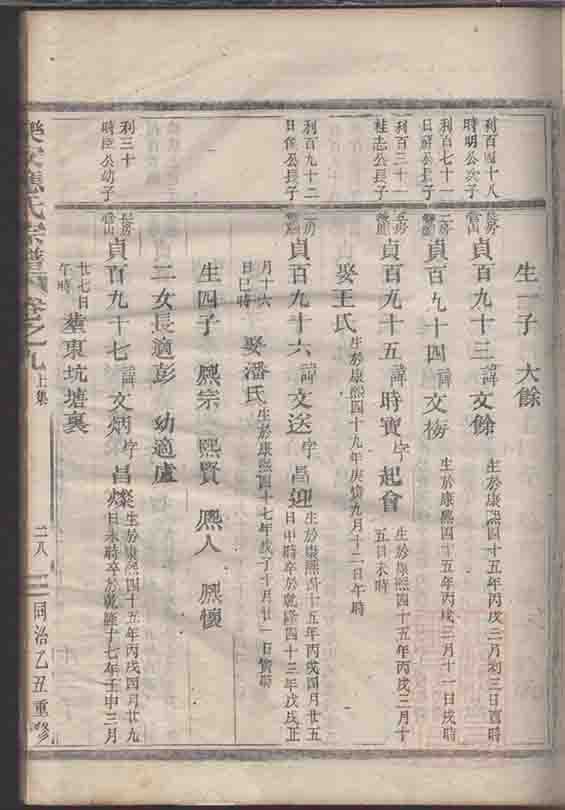 生一子 大餘
利百四十八
時明公次子
長房
當山
貞百九十三 諱文餘 生於康熙四十五年丙戌三月初三日酉時
利百七十一
公長子
二房
貞百九十四 諱文 生於康熙四十五年丙戌三月十一日戌時
利百三十一
桂志公長子
長房
貞百九十五 諱時寶 字起會 生於康熙四十五年丙戌三月十
五日未時
娶王氏 生於康熙四十九年庚寅九月十二日午時
利百九十二
公長子
二房
貞百九十六 諱文送 字昌迎 生於康熙四十五年丙戌四月廿五
日申時卒於乾隆四十三年戊戌正
月十六
日巳時
娶潘氏 生於康熙四十七年戊子十月廿一日寅時
生四子 熈宗 熈賢 熈人 熈懷
二女長適彭 幼適盧
利三十
時 公幼子
長房
當山
貞百九十七 諱文炳 字昌燦 生於康熙四十五年丙戌四月廿九
日未時卒於乾隆十七年壬申三月
廿七日
午時
葬東坑塘裏
樂安 氏宗譜 卷之九 上集 二八 同治乙丑重修